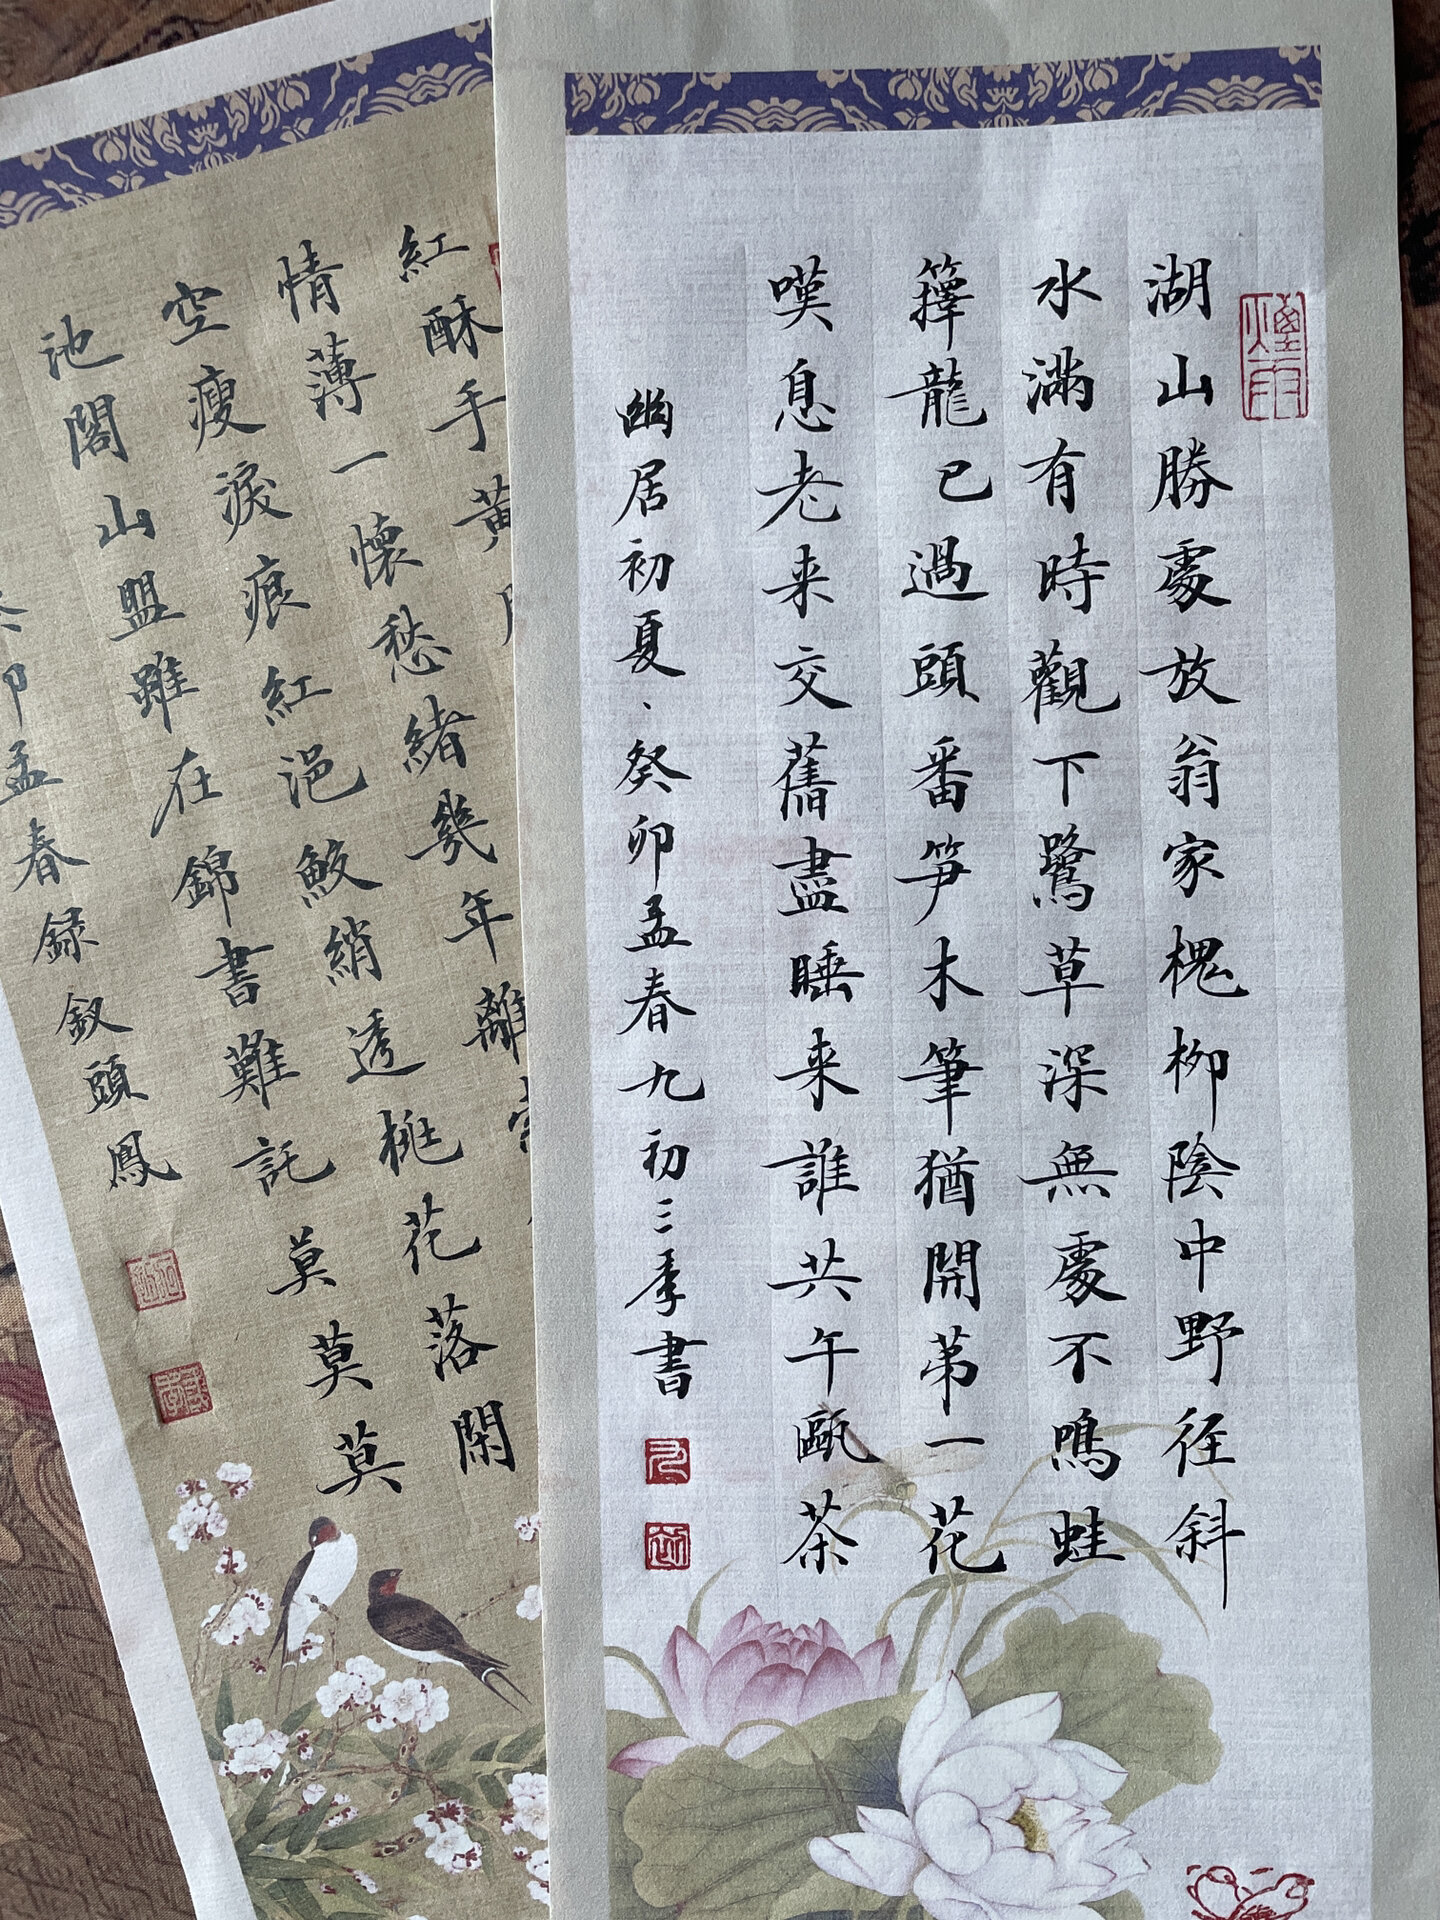 湖山勝處放翁家槐柳陰中野径斜
水滿有時觀下鷺草深無處不鳴蛙
籜龍已過頭番笋木筆猶開苐一花
嘆息老来交舊盡睡来誰共午甌茶
幽居初夏、癸卯孟春九初三季書
紅酥手黃
情薄一懷愁緒幾年離
空瘦淚痕紅浥鮫綃透桃花落閑
池閣山盟雖在錦書難託莫莫莫
癸卯孟春録釵頭鳳